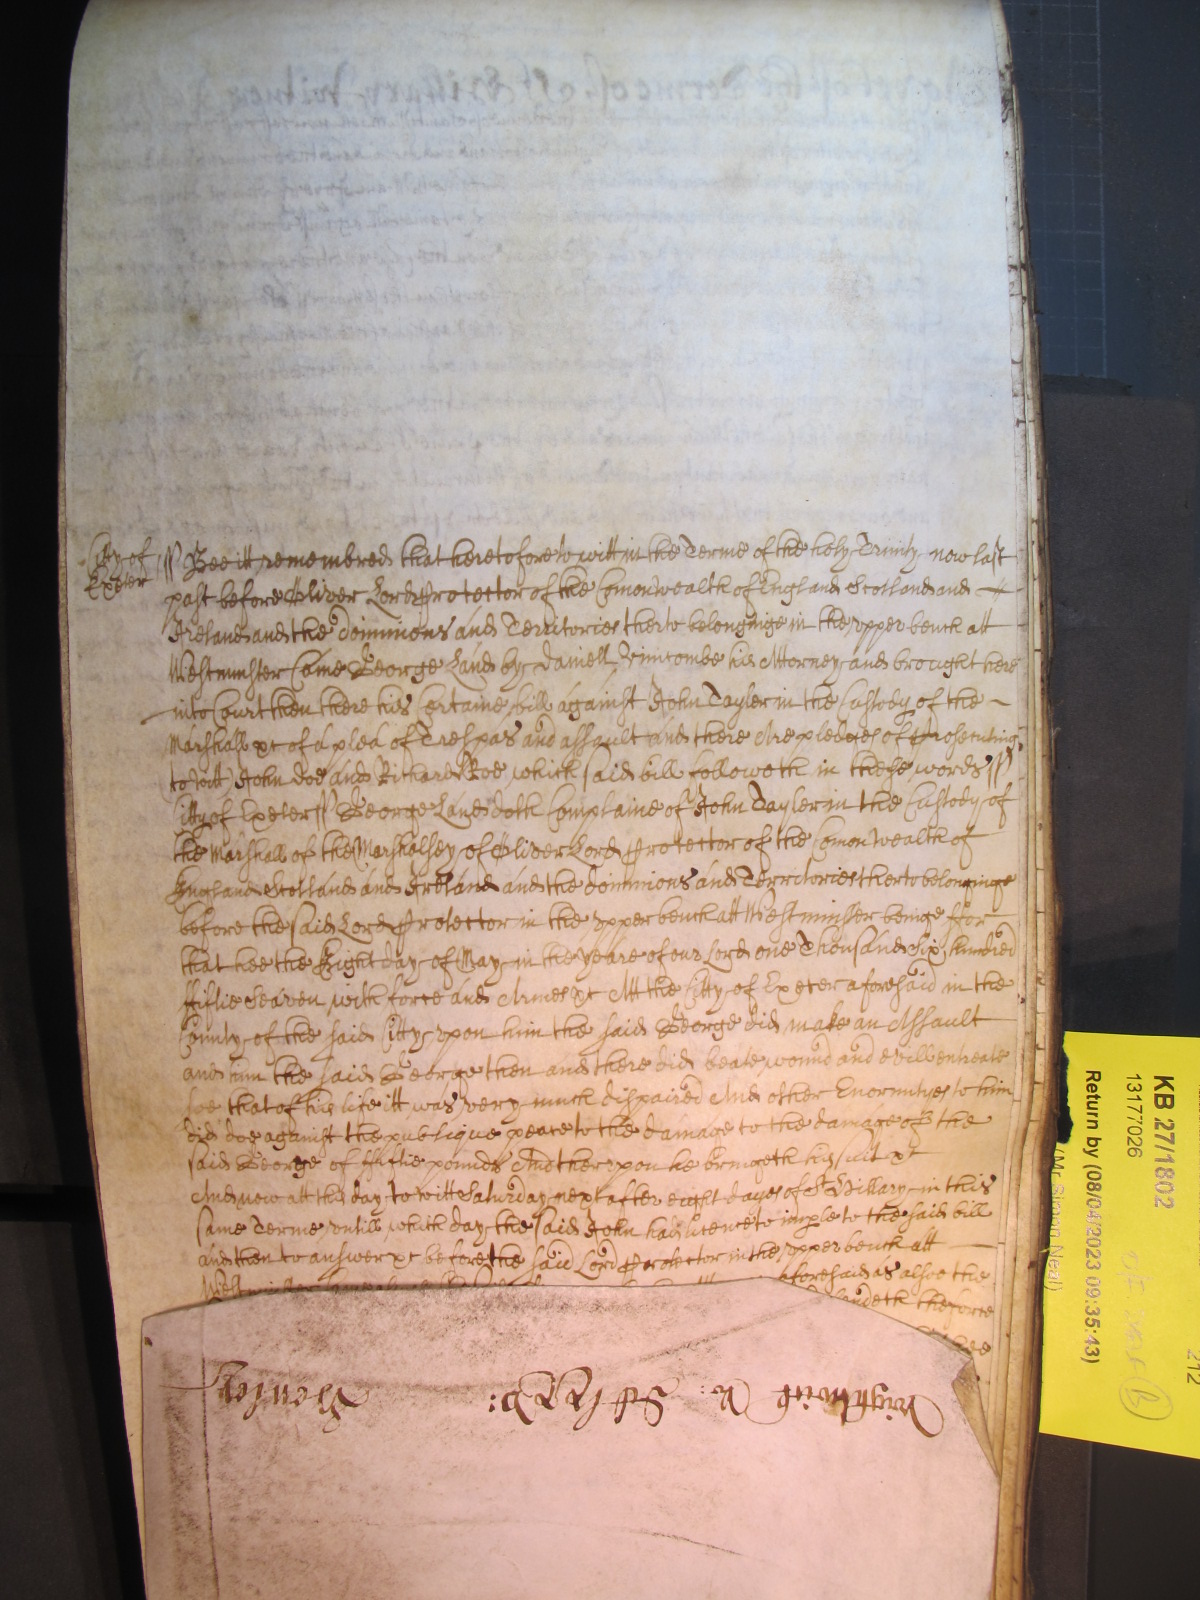 Citty of
Exeter
ss Bee itt remembred that heretofore to witt in the Terme of the holy Trinity now last
past before Oliver Lord Protector of the Comonwealth of England Scotland and
Ireland and the dominions and Territories therto belonginge in the upper bench att
Westminster Came George Land by Daniell Vinicombe his Attorney and brought here
into Court then there his Certaine bill against John Tayler in the Custody of the
Marshall &c of a plea of Trespas and assault And there Are pledges of Prosecuting
to witt John Doe and Richard Roe which said bill followeth in these words ss
Citty of Exeter ss George Land doth Complaine of John Tayler in the Custody of
the Marshall of the Marshalsey of Oliver Lord Protector of the Comonwealth of
England Scotland and Ireland and the dominions and Territories therto belonginge
before the said Lord Protector in the upper bench att Westminster beinge ffor
that hee the Eight day of May in the yeare of our Lord one Thousand Six hundred
ffiftie Seaven with force and Armes &c Att the Citty of Exeter aforesaid in the
County of the said Citty upon him the said George did make an Assault
and him the said George then and there did beate wound and evill entreate
soe that of his life itt was very much dispaired And other Enormityes to him
did doe against the publique peace to the damage to the damage of the
said George of ffiftie pounds And therupon he bringeth his suit &c
And now att this day to witt Saturday next after eight dayes of St Hillary in this
same Terme untill which day the said John had licence to imple to the said bill
and then to answer &c before the said Lord Protector in the upper bench att
aforesaid as alsoe the
the force
Wightwick &
Henley
KB 27/1802
13177026
Return by (08/04/2023 09:35:43)
(Mr Simon Neal)
212